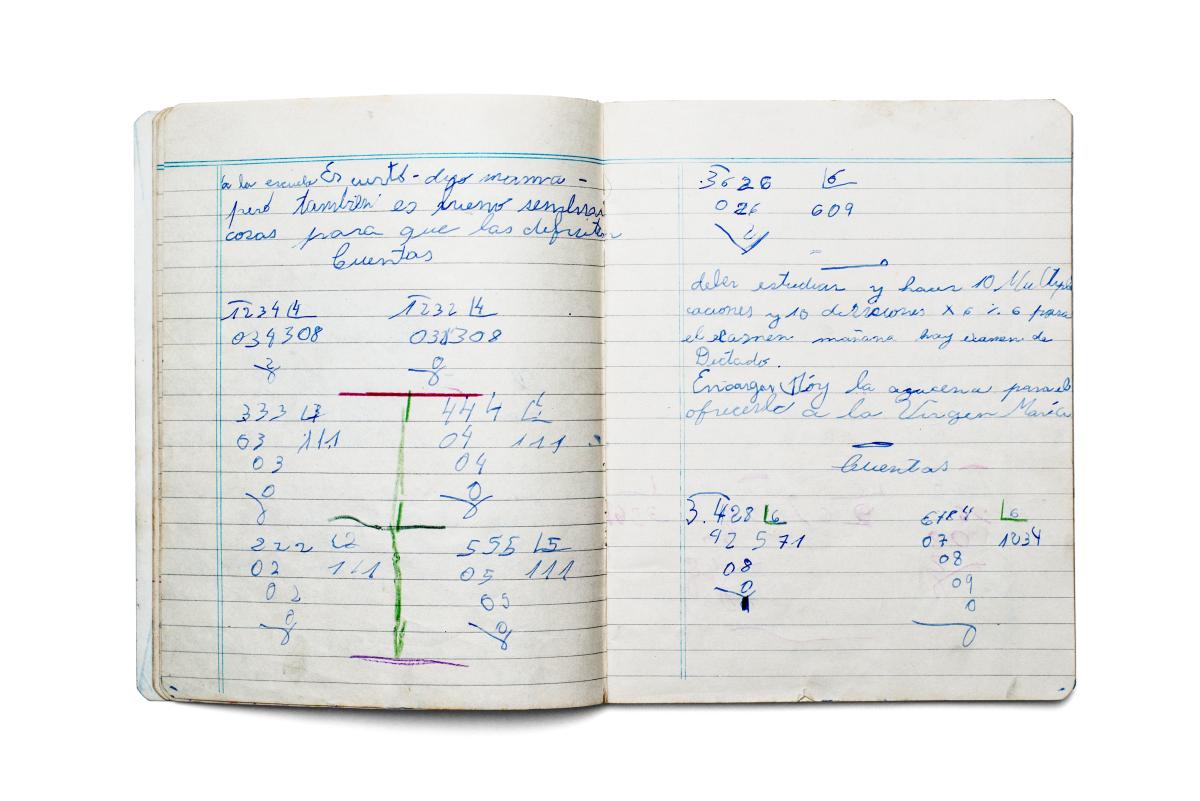 a la escuela Es cierto - dijo mama -
pero también es bueno sembrar
cosas para que las disfruten
Cuentas
1234 4 1232 4
034308 03 308
2 0
333 3 444 4
03 111 04 111
03 04
0 0
222 2 555 5
02 111 05 111
02 05
0 0
3626 6
026 609
2
deber estudiar y hacer 10 Multipli
caciones y 10 divisiones X 6 % 6 para
el examen mañana hay examen de
Dictado.
Encargan Hoy la azucena para el
ofrecerla a la Virgen María
Cuentas
3.428 6 6784 6
42 571 07 1234
08 08
0 09
0